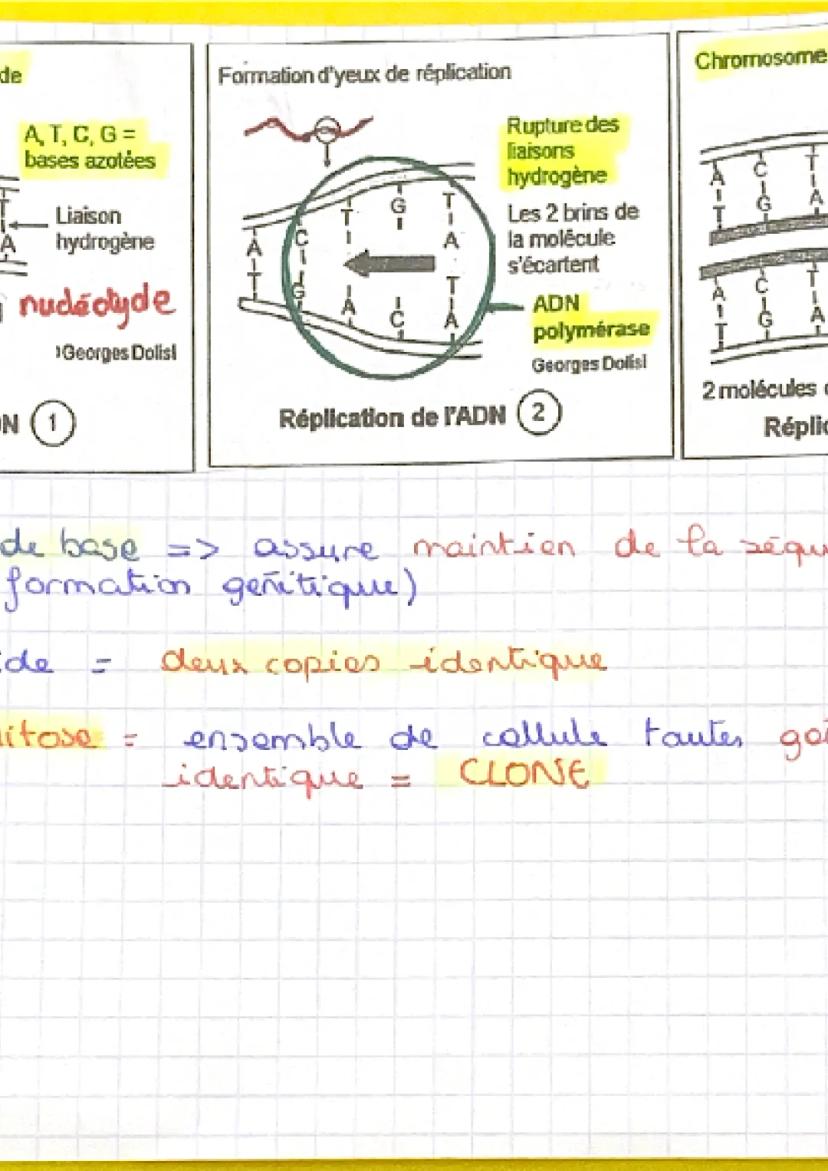 de
A, T, C, G =
bases azotées
T
A
Liaison
hydrogène
nucléotyde
Georges Dolisi
N 1
Formation d'yeux de réplication
Rupture des
liaisons
hydrogène
Les 2 brins de
la molécule
s'écartent
ADN
polymérase
Georges Dolisi
A C T G T
T G A C A
A T
Réplication de l'ADN 2
Chromosome
A C T
T G A
A C T
T G A
2 molécules
Réplic
de base => assure maintien de la séqu
formation genitique)
ide = deux copies identique
mitose = ensemble de cellule toutes gé
identique = CLONE